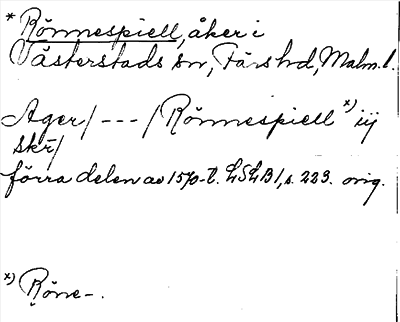 * Rönnespiell, åker i
Västerstads sn, Färs hd, Malm. l.
Ager/ --- / Rönnespiell x) iij
skr̄/
förra delen av 1570-t. LSLB 1, s. 223. orig.
x) Röne-.